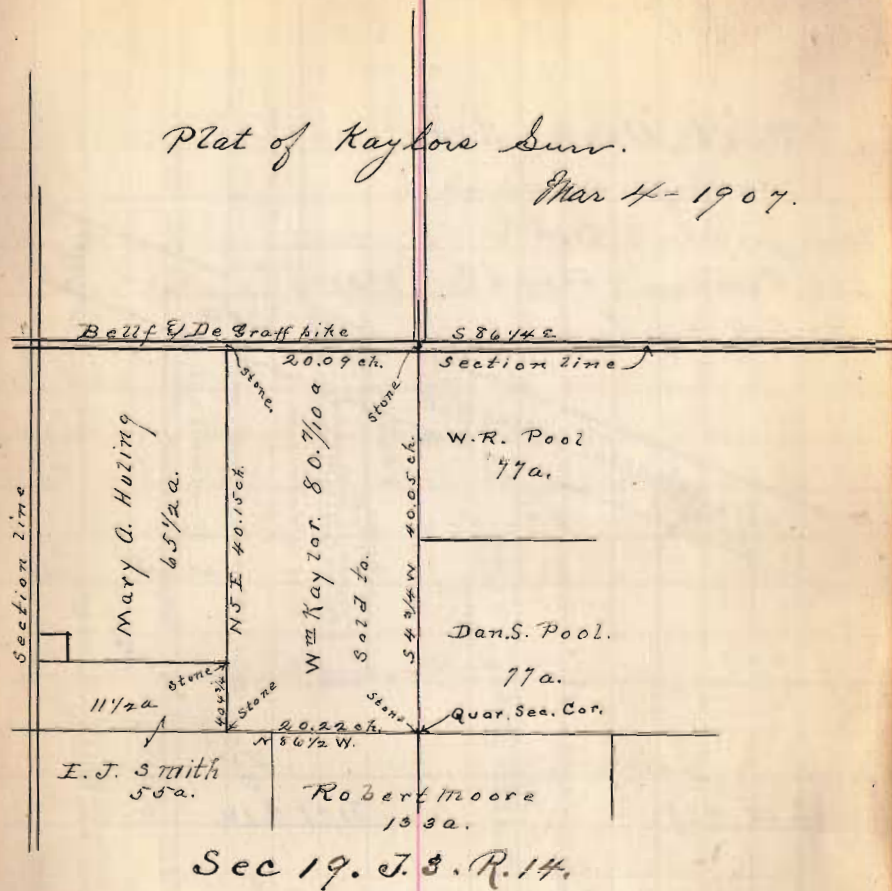 Plat of Kaylors Surv.
Mar 4 - 1907.
Bellf & De Graff pike
S 86 1/4 E
20.09 ch.
Section line
stone.
stone
Section line
Mary A. Huling
65 1/2 a.
N 5 E 40.15 ch.
Wm Kaylor. 80. 7/10 a
Sold to.
S 4 3/4 W 40.05 ch.
W. R. Pool
77a.
Dan. S. Pool.
77a.
Quar. Sec. Cor.
stone
stone
stone
11 1/2 a
20.22 ch.
N 86 1/2 W.
E. J. Smith
55a.
Robert Moore
133a.
Sec 19. T. 3. R. 14.